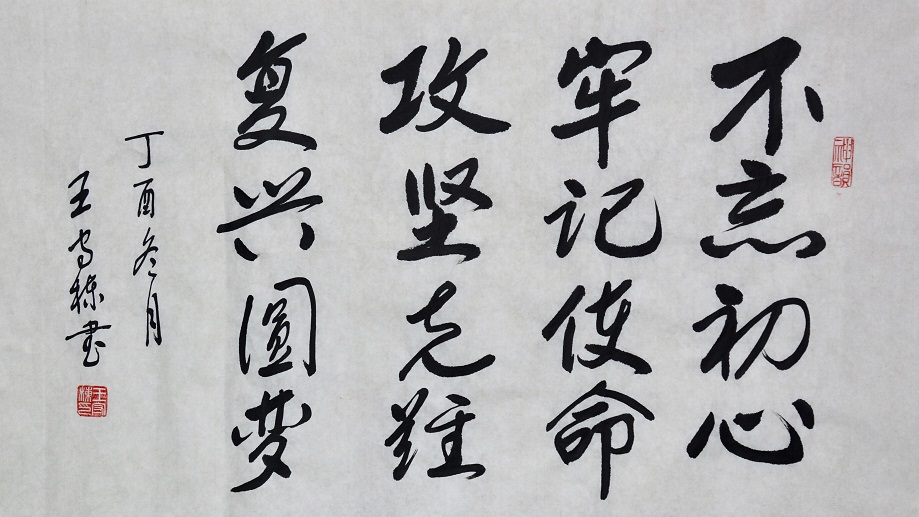 不忘初心
牢记使命
攻坚克難
复兴圆梦
丁酉冬月
王家栋书